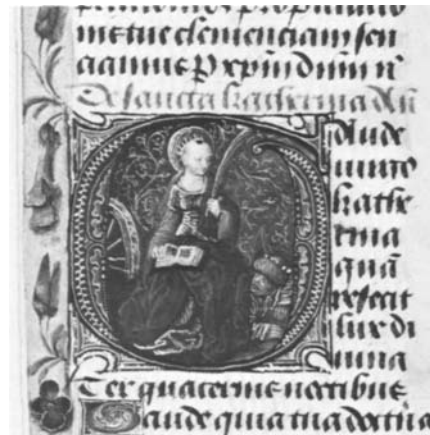 me tue clemenciam sen
ciamus P xpm dnm nr
De sancta katherina añ
Aude
uirgo
kathe
rina
quã
refecit
lux di
uina
Ter quaternis noctibus
Gaude quia tua doctrina